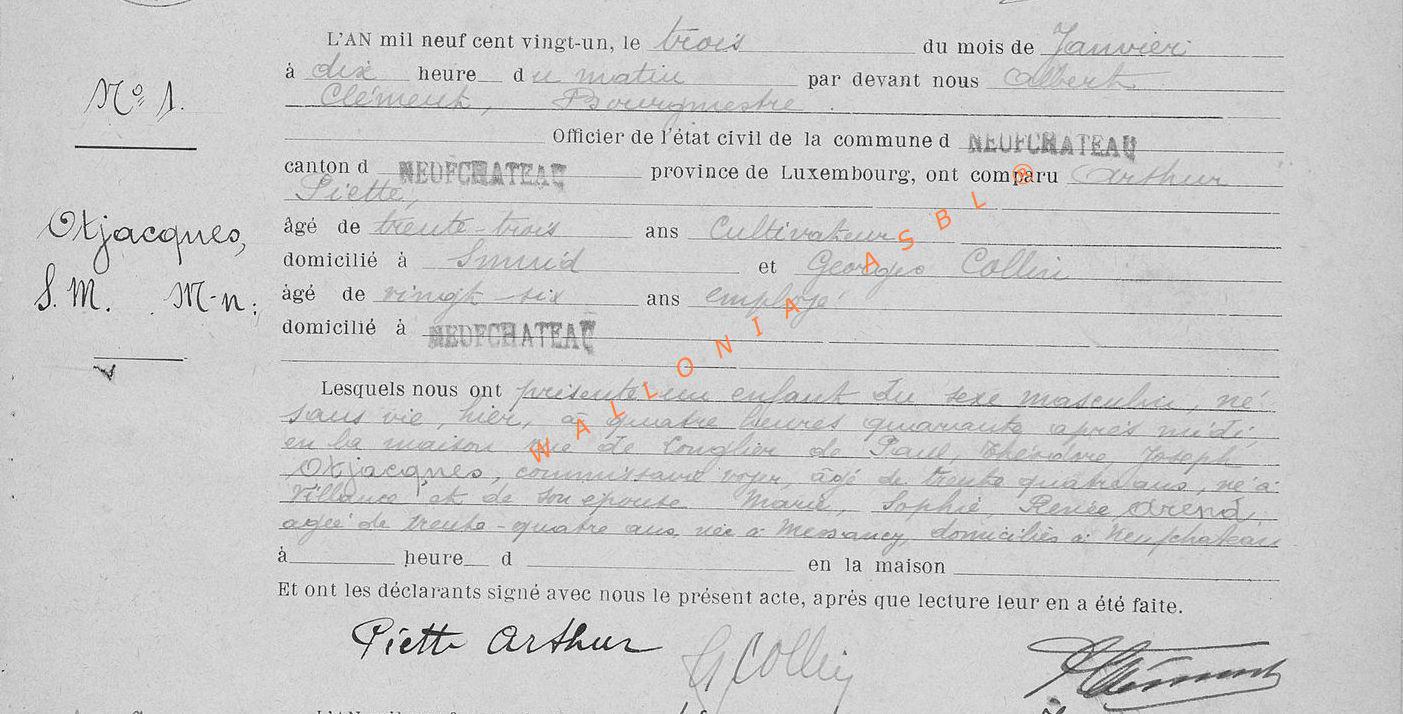 L'AN mil neuf cent vingt-un, le trois du mois de Janvier
à dix heure du matin par devant nous Albert
Clément, Bourgmestre
Officier de l'état civil de la commune d NEUFCHATEAU
canton d NEUFCHATEAU province de Luxembourg, ont comparu Arthur
Piette,
âgé de trente-trois ans Cultivateur
domicilié à et Georges Collin
âgé de vingt-six ans employé
domicilié à NEUFCHATEAU
Lesquels nous ont présenté un enfant du sexe masculin, né
sans vie, hier, à quatre heures quarante après midi
en la maison rue de Longlier de Paul, Théodore, Joseph
Otjacques, commissaire voyer, âgé de trente quatre ans, né à
Villance et de son épouse Marie, Sophie, Renée Arend,
agée de trente-quatre ans née à Messancy, domiciliés à Neufchateau
à heure d en la maison
Et ont les déclarants signé avec nous le présent acte, après que lecture leur en a été faite.
Piette Arthur G Collin Clément
N° 1.
Otjacques,
S. M. M-n:
WALLONIA ASBL ®
L'AN